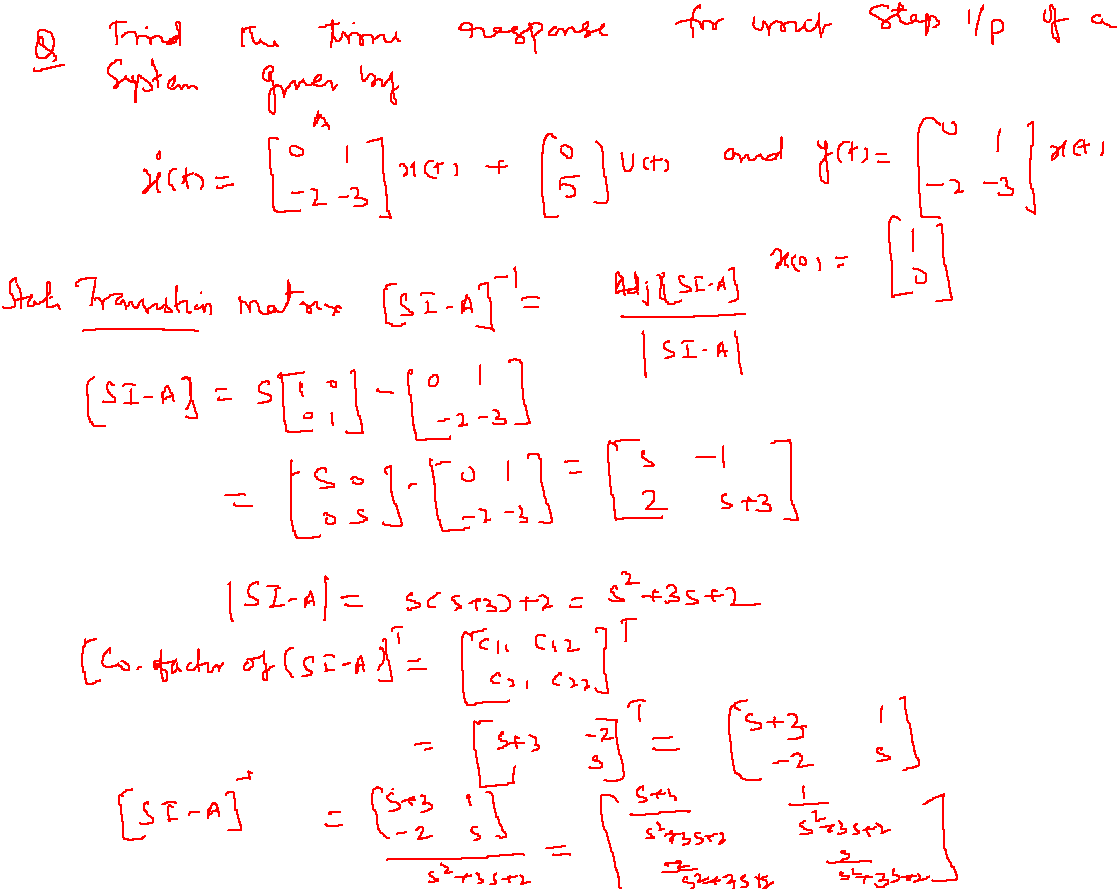 Q Find the time response for unit step i/p of a
System given by
ẋ(t) = [0 1; -2 -3] x(t) + [0; 5] U(t) and y(t) = [0 1; -2 -3] x(t)
A
x(0) = [1; 0]
State Transition matrix [SI-A]⁻¹ = Adj[SI-A] / |SI-A|
[SI-A] = S[1 0; 0 1] - [0 1; -2 -3]
= [S 0; 0 S] - [0 1; -2 -3] = [S -1; 2 S+3]
|SI-A| = S(S+3)+2 = S²+3S+2
[Co-factor of (SI-A)]ᵀ = [C11 C12; C21 C22]ᵀ
= [S+3 -2; S]ᵀ = [S+3 1; -2 S]
[SI-A]⁻¹ = [S+3 1; -2 S] / S²+3S+2 = [S+3/S²+3S+2 1/S²+3S+2; -2/S²+3S+2 S/S²+3S+2]